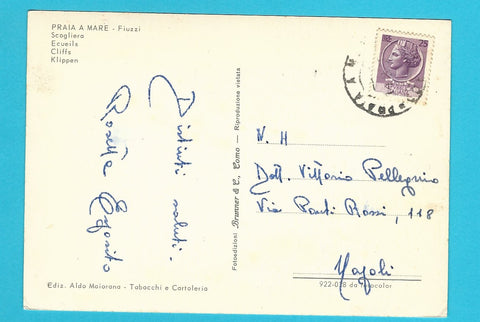 PRAIA A MARE - Fiuzzi
Scogliera
Ecueils
Cliffs
Klippen
25
Distinti saluti.
Rosetta Esposito
Fotoedizioni Brunner & C., Como — Riproduzione vietata
N. H
Dott. Vittorio Pellegrino
Via Ponti Rossi, 118
Napoli
Ediz. Aldo Maiorana - Tabacchi e Cartoleria
922-028 da fotocolor